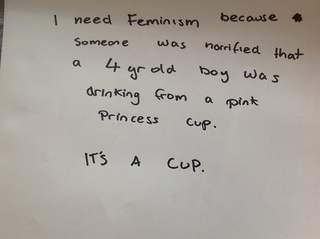 I need Feminism because
someone was horrified that
a 4 yr old boy was
drinking from a pink
Princess cup.
IT'S A CUP.